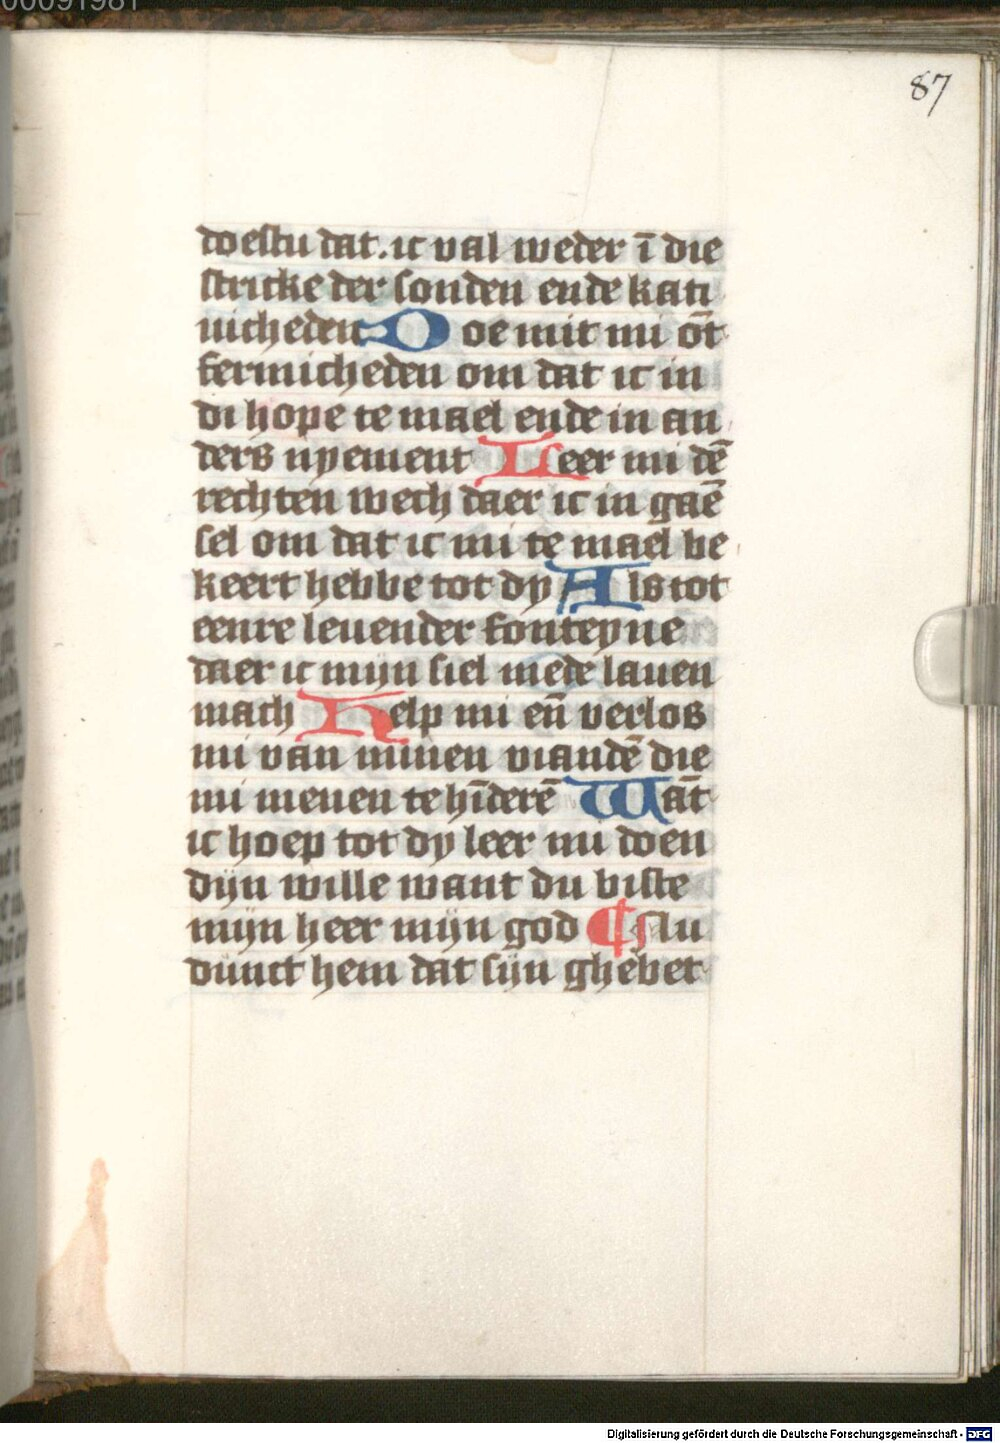 00091981
87
doestu dat. ic val weder ī die
stricke der sonden ende kati
uicheden Doe mit mi ōt
fermicheden om dat ic in
di hope te mael ende in an
ders nyement Leer mi dē
rechten wech daer ic in gaē
sel om dat ic mi te mael be
keert hebbe tot dy Als tot
eenre leuender fonteyne
daer ic mijn siel mede lauen
mach Help mi eñ verlos
mi van minen viandē die
mi menen te hīderē Wāt
ic hoep tot dy leer mi doen
dijn wille want du biste
mijn heer mijn god ¶ S Au
dunct hem dat sijn ghebet
Digitalisierung gefördert durch die Deutsche Forschungsgemeinschaft - DFG